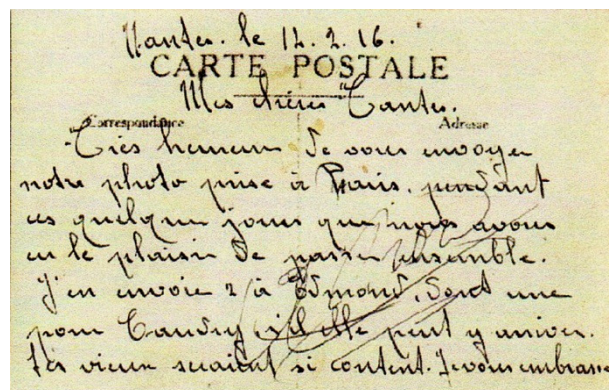 Nantes. le 12.2.16.
CARTE POSTALE
Mes chères Tantes.
Correspondance Adresse
Très heureux de vous envoyer
notre photo prise à Paris. pendant
ces quelques jours que nous avons
eu le plaisir de passer ensemble.
J'en envoie 2 à Edmond, dont une
pour Caudry si elle peut y arriver.
Les vieux seraient si content. Je vous embrasse